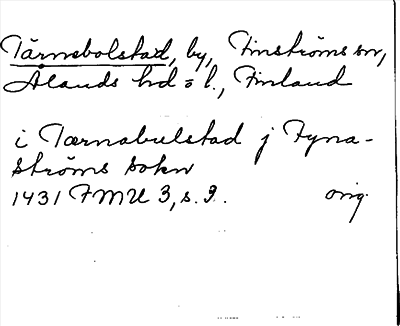 Tärnebolstad, by, Finströms sn,
Ålands hd o l., Finland
i Tærnabulstad j Fyna-
ströms sokn
1431 FMU 3, s. 9. orig.